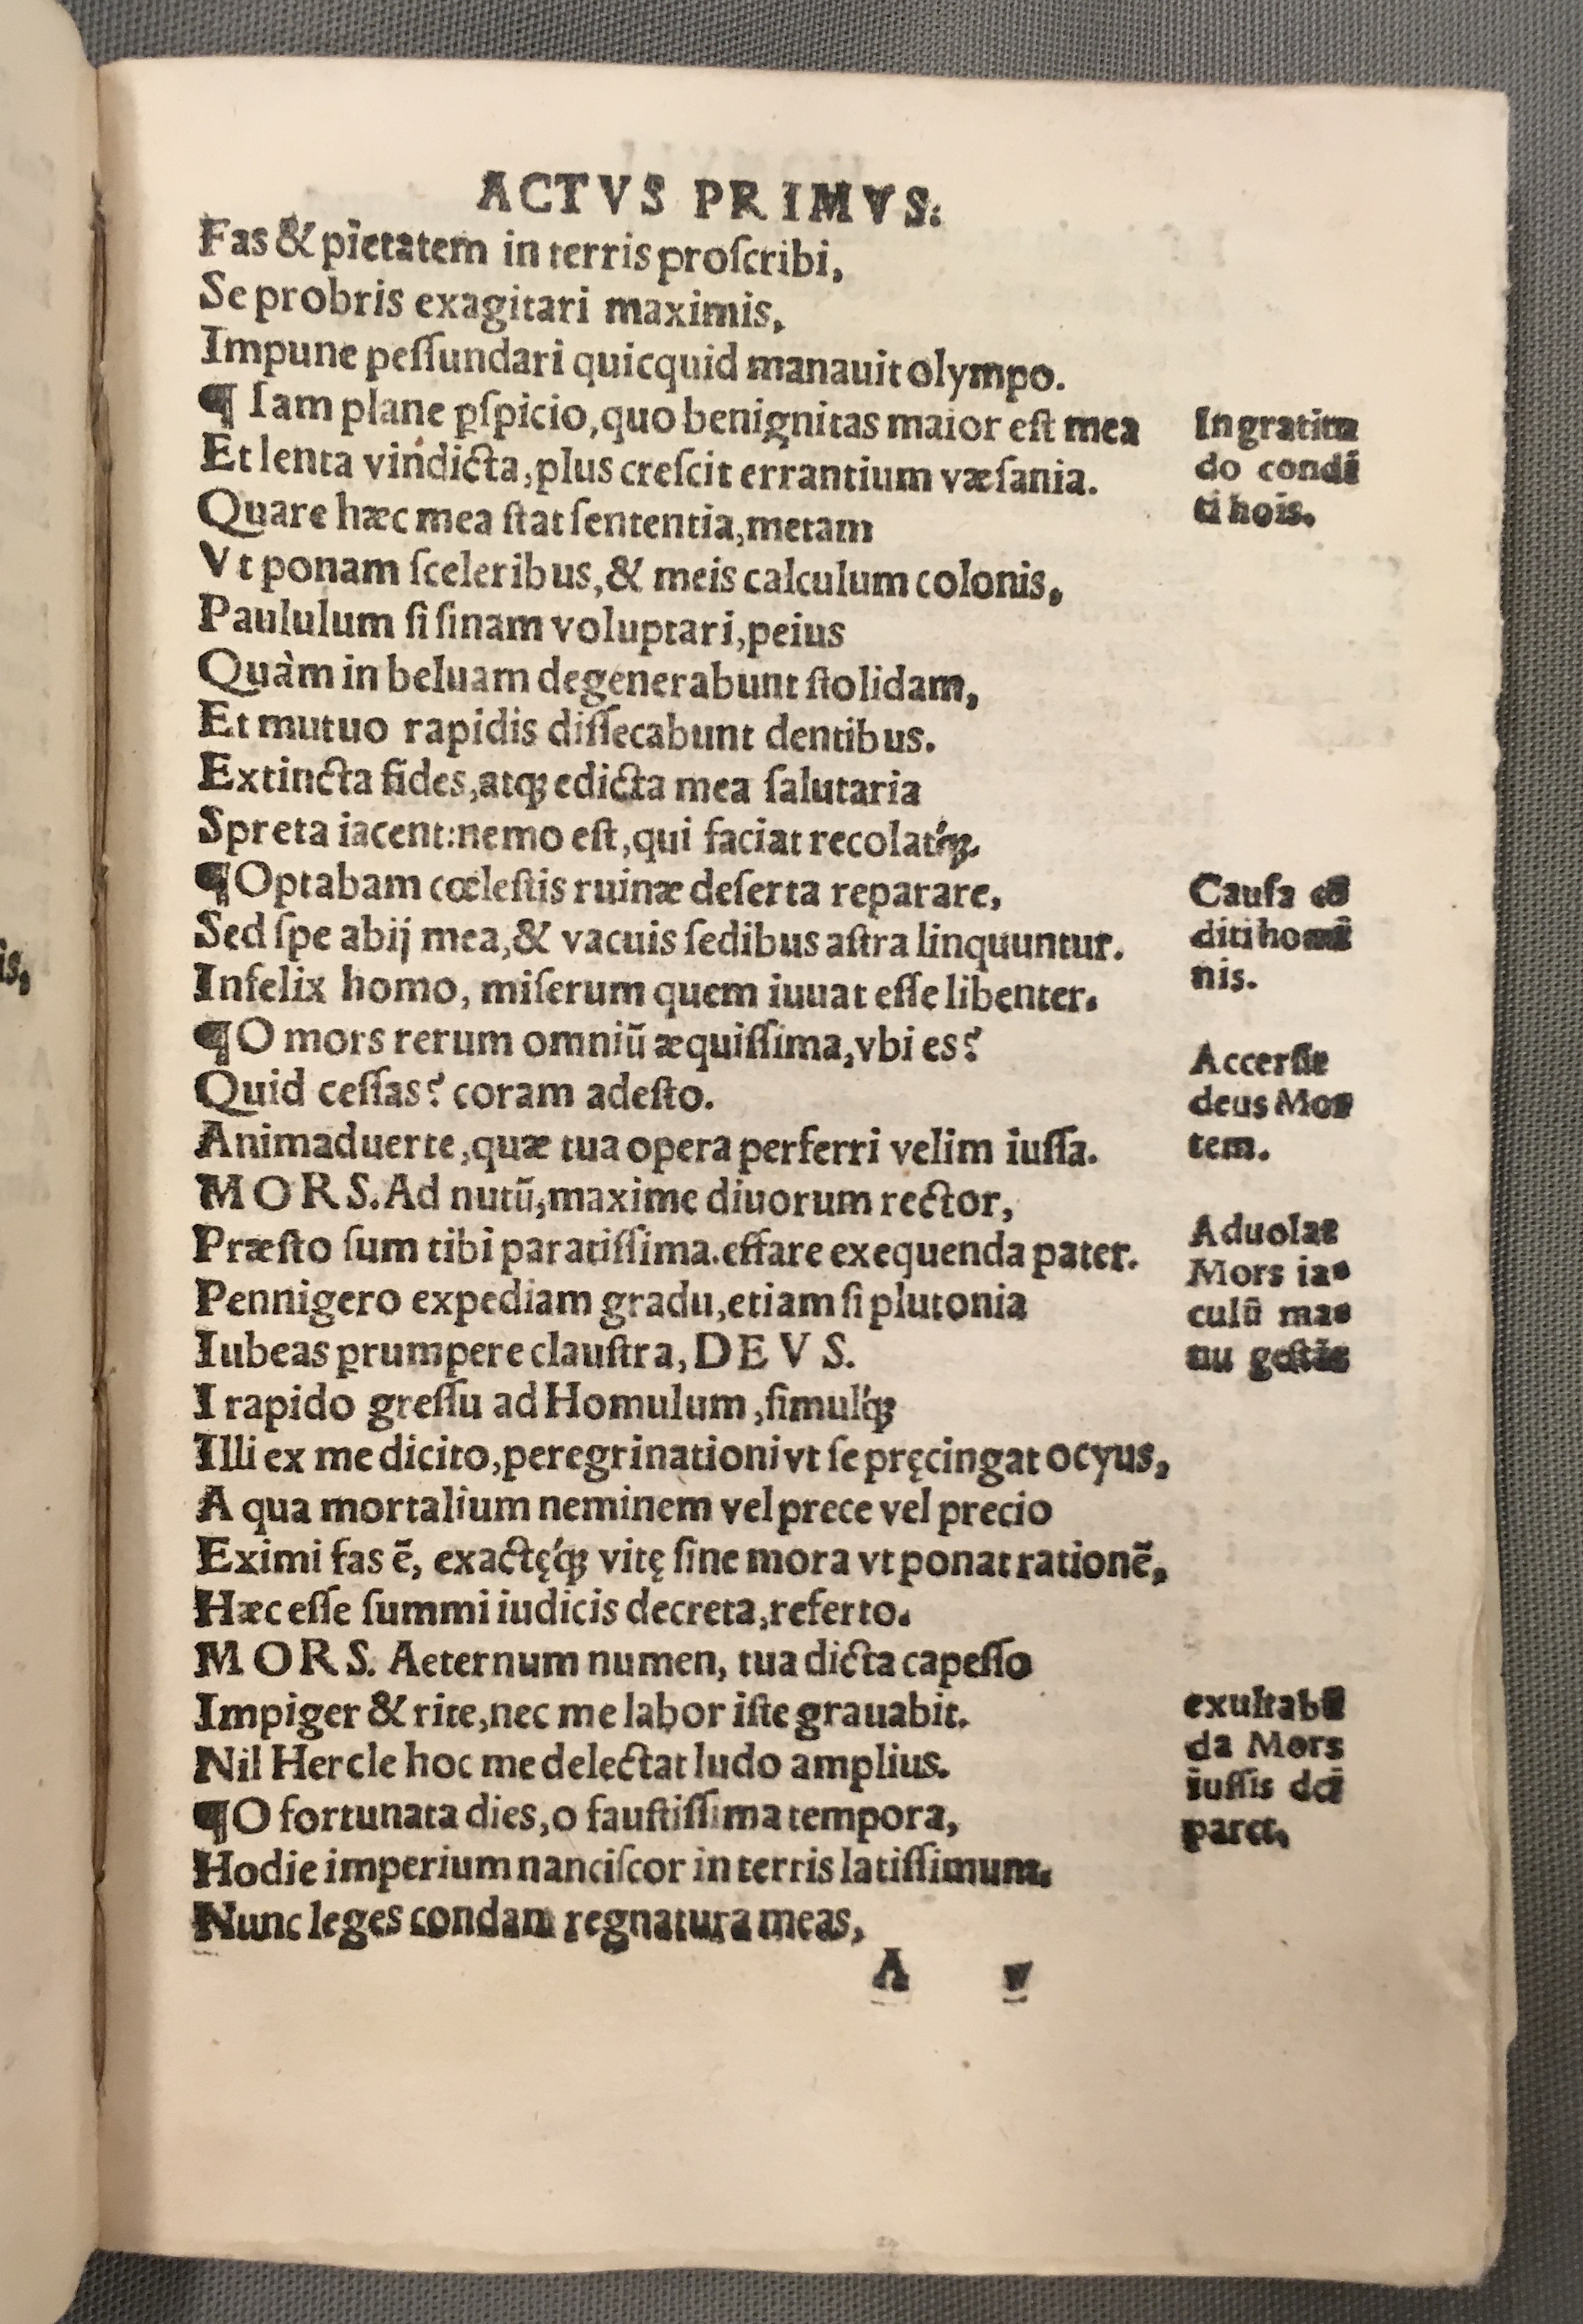 ACTVS PRIMVS:
Fas & pietatem in terris proſcribi,
Se probris exagitari maximis,
Impune peſſundari quicquid manauit olympo.
¶ Iam plane ꝑſpicio, quo benignitas maior eſt mea
Et lenta vindicta, plus creſcit errantium væſania.
Ingratitu
do condi
ti hois.
Quare hæc mea ſtat ſententia, metam
Vt ponam ſceleribus, & meis calculum colonis,
Paululum ſi ſinam voluptari, peius
Quàm in beluam degenerabunt ſtolidam,
Et mutuo rapidis diſſecabunt dentibus.
Extincta fides, atqꝫ edicta mea ſalutaria
Spreta iacent: nemo eſt, qui faciat recolat́qꝫ.
¶Optabam cœleſtis ruinæ deſerta reparare,
Sed ſpe abij mea, & vacuis ſedibus aſtra linquuntur.
Infelix homo, miſerum quem iuuat eſſe libenter.
Cauſa cō
diti homi
nis.
¶O mors rerum omniū æquiſſima, vbi es?
Quid ceſſas? coram adeſto.
Animaduerte, quæ tua opera perferri velim iuſſa.
Accerſit
deus Mor
tem.
MORS. Ad nutū, maxime diuorum rector,
Præſto ſum tibi paratiſſima. effare exequenda pater.
Pennigero expediam gradu, etiam ſi plutonia
Iubeas ꝑrumpere clauſtra, DEVS.
Aduolat
Mors ia-
culū ma-
nu geſtās
I rapido greſſu ad Homulum, ſimuĺqꝫ
Illi ex me dicito, peregrinationi vt ſe pręcingat ocyus,
A qua mortalium neminem vel prece vel precio
Eximi fas ē, exactę́qꝫ vitę ſine mora vt ponat rationē,
Hæc eſſe ſummi iudicis decreta, referto.
MORS. Aeternum numen, tua dicta capeſſo
Impiger & rite, nec me labor iſte grauabit.
Nil Hercle hoc me delectat ludo amplius.
exultabū
da Mors
iuſſis dei
paret,
¶O fortunata dies, o fauſtiſſima tempora,
Hodie imperium nanciſcor in terris latiſſimum.
Nunc leges condam regnatura meas,
A v
is,